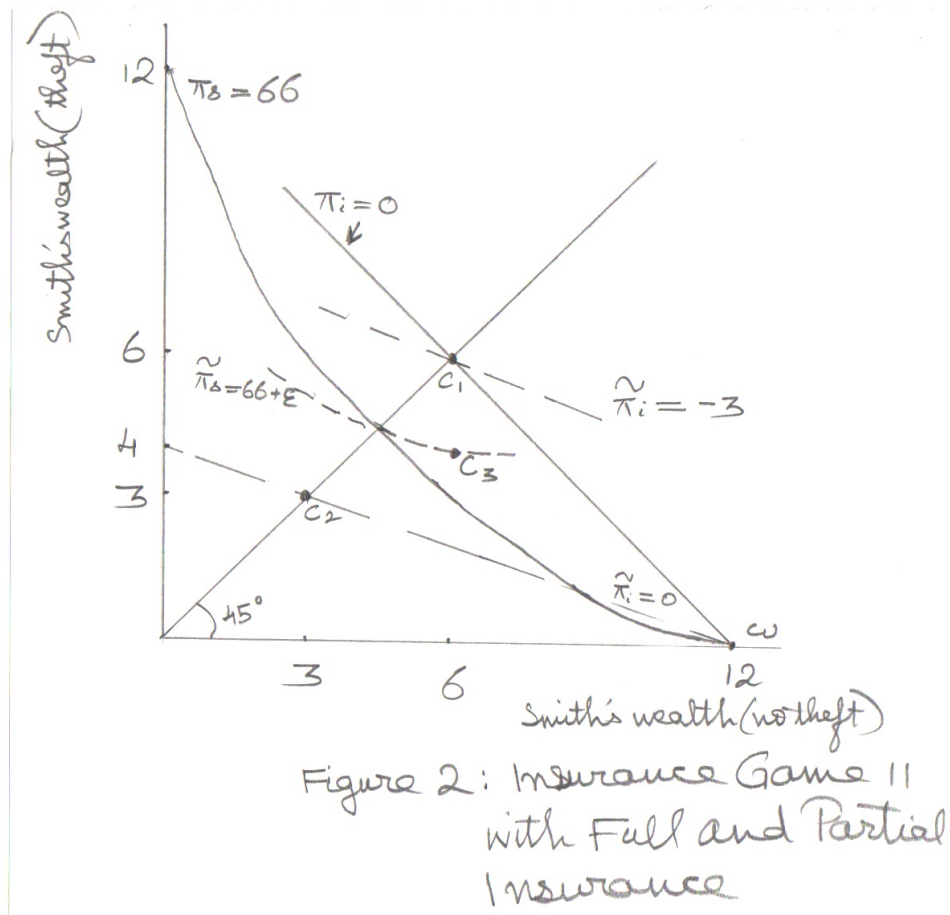 Smith's wealth (theft)
12
πs = 66
πi = 0
6
π̃s = 66+ε
C1
π̃i = -3
4
C3
3
C2
π̃i = 0
45°
ω
3
6
12
Smith's wealth (no theft)
Figure 2: Insurance Game II
with Full and Partial
Insurance